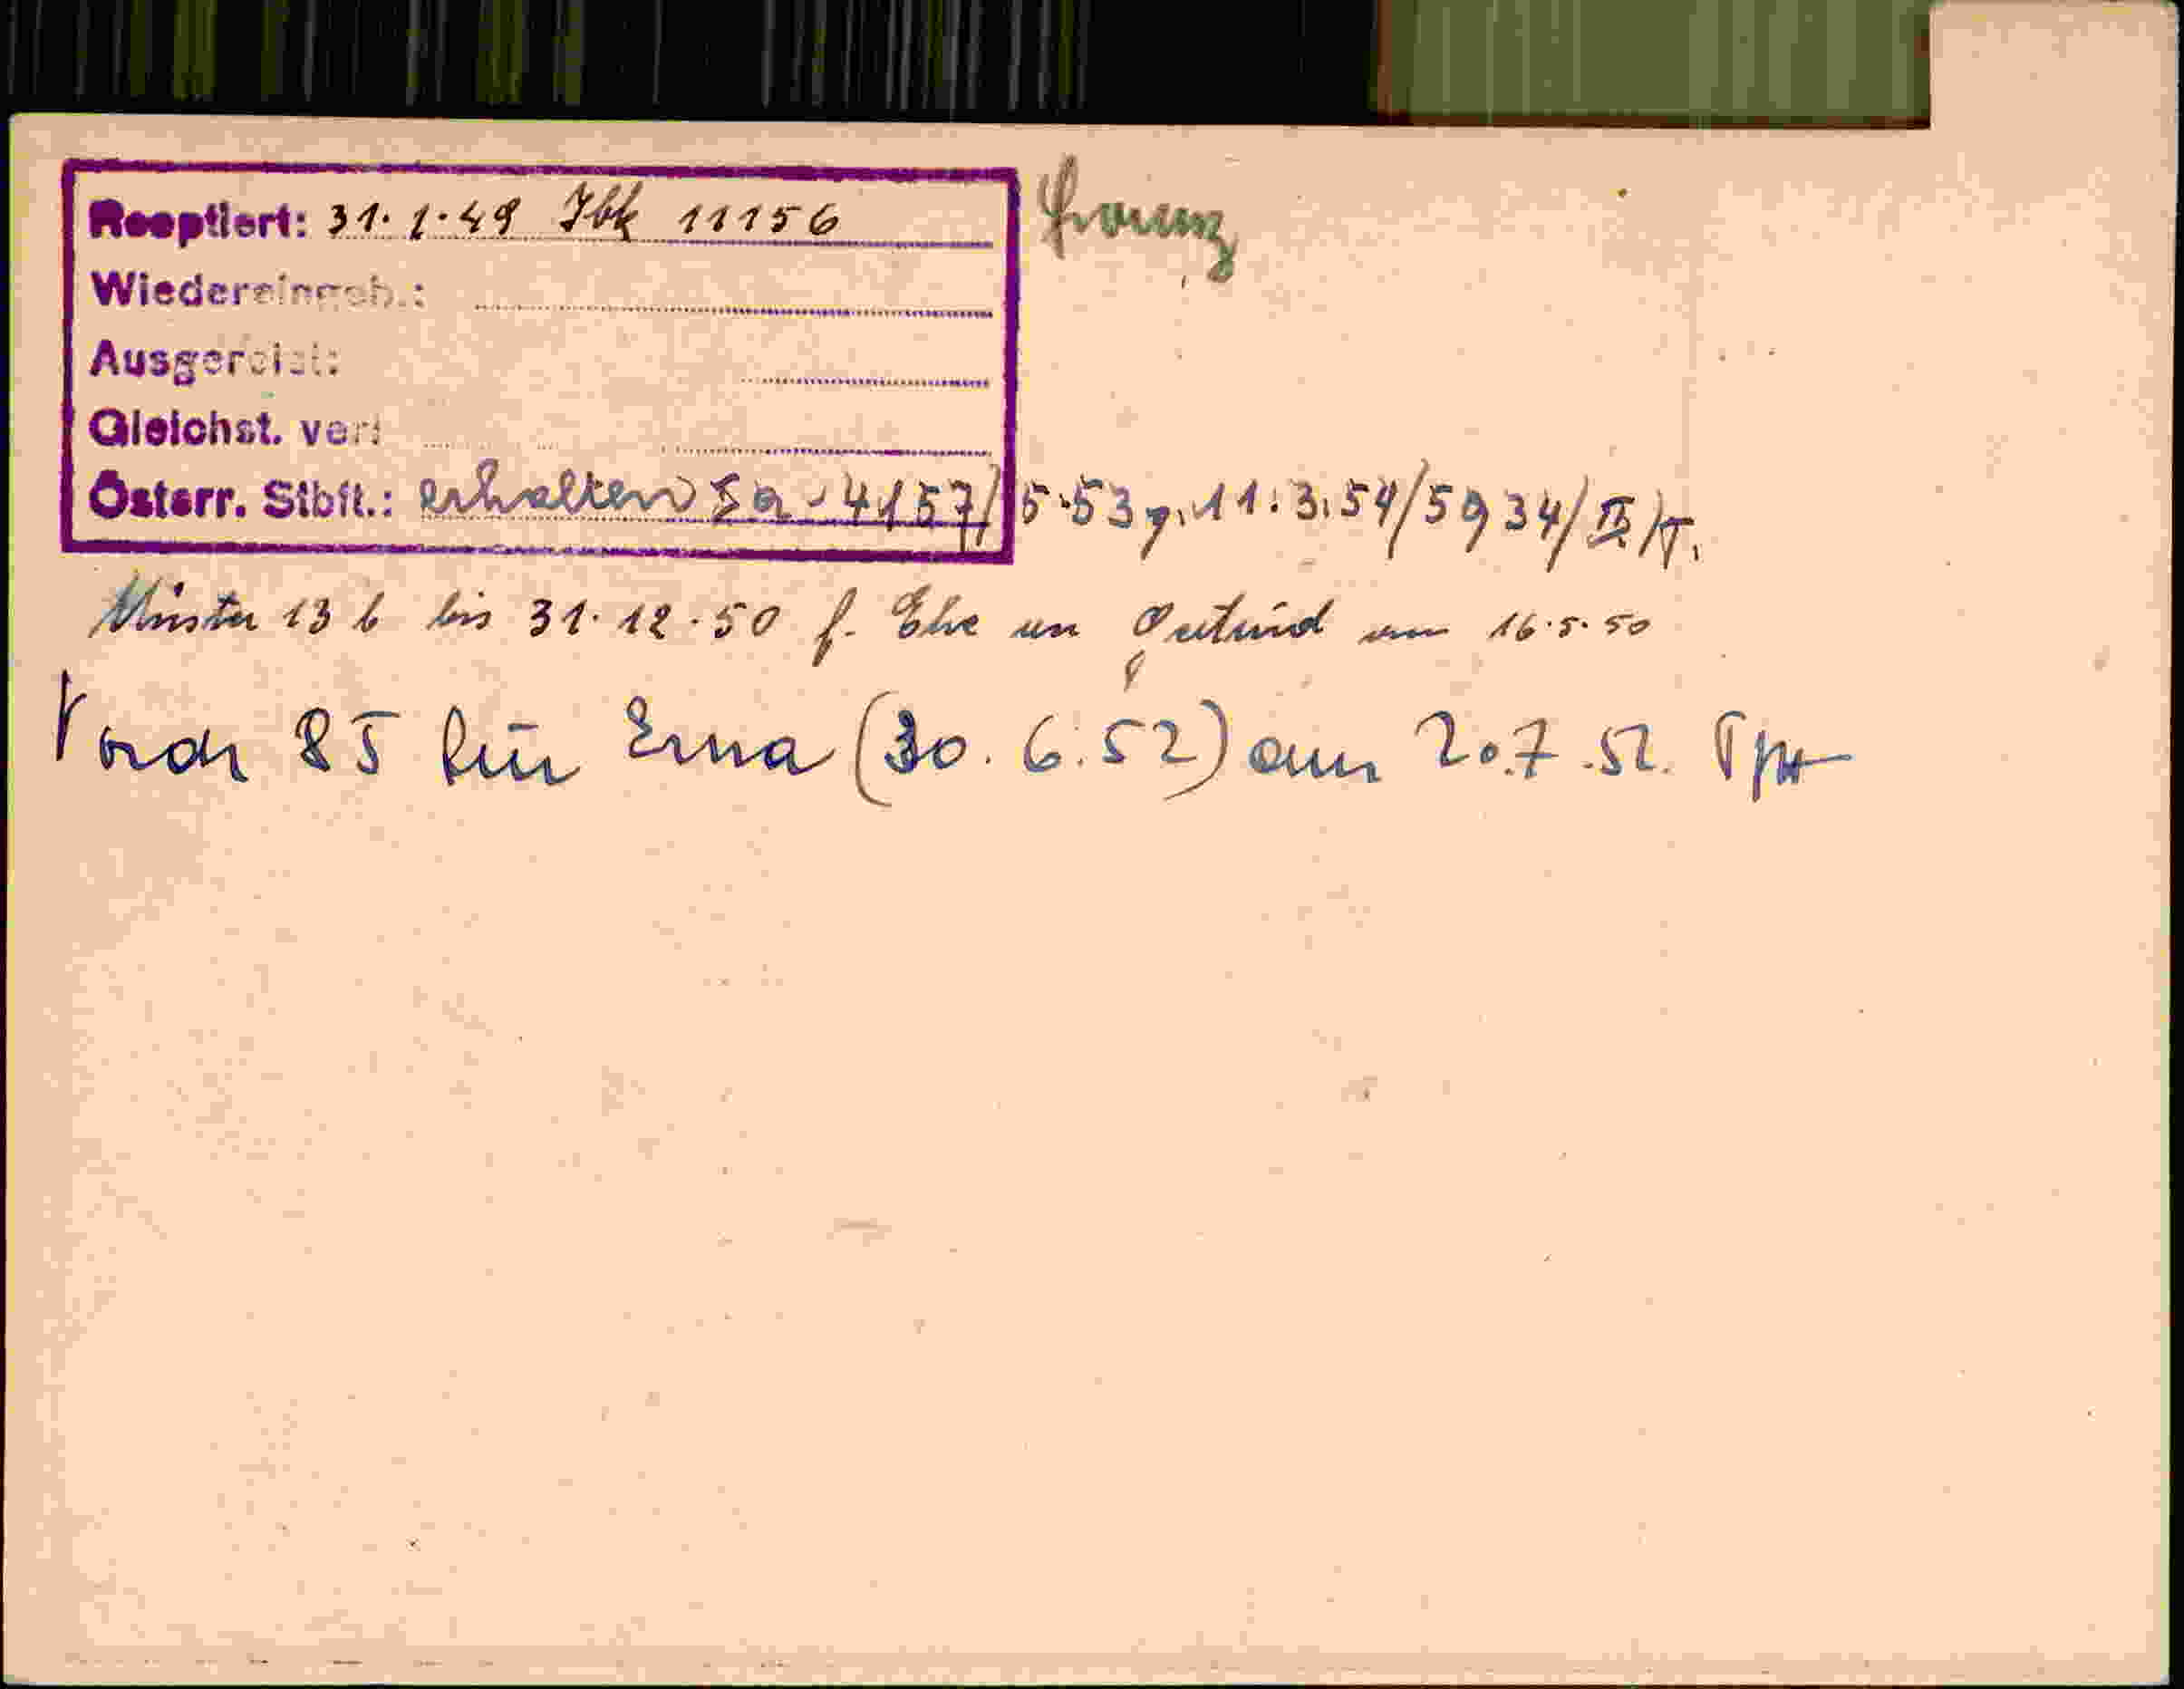 Reoptiert: 31.1.49 Ibk 11156
Wiedereingeb.:
Ausgereist:
Gleichst. verl
Österr. Stbft.: erhalten Ia-4157/5-53 v. 11.3.54/5934/
Muster 13 b bis 31.12.50 f. Ehe m Gertrud am 16.5.50
Vordr 85 für Erna (30.6.52) am 20.7.52.